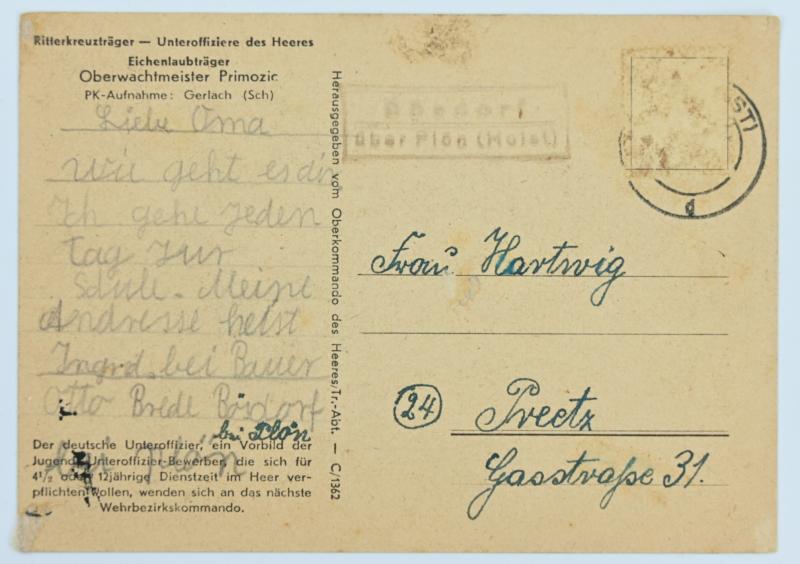 Ritterkreuzträger — Unteroffiziere des Heeres
Eichenlaubträger
Oberwachtmeister Primozic
PK-Aufnahme: Gerlach (Sch)
Liebe Oma
wie geht es dir
Ich gehe jeden
Tag zur
Schule. Meine
Andresse heist
Ingrid bei Bauer
Otto Brede Bösdorf
bei Plön
bei Plön
Der deutsche Unteroffizier, ein Vorbild der
Jugend. Unteroffizier-Bewerber, die sich für
4½ oder 12jährige Dienstzeit im Heer ver-
pflichten wollen, wenden sich an das nächste
Wehrbezirkskommando.
Herausgegeben vom Oberkommando des Heeres/Tr.-Abt. — C/1362
Bösdorf
über Plön (Holst.)
ST)
d
Frau Hartwig
24 Preetz
Gasstraße 31.